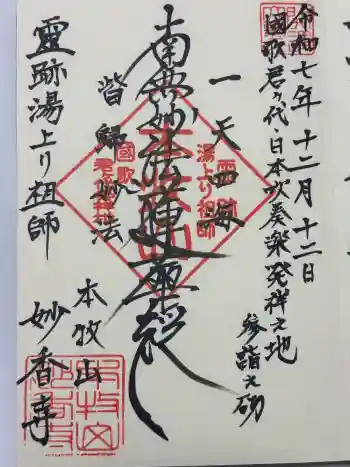 令和七年十二月十二日
國歌君ヶ代・日本吹奏楽発祥之地
参詣之砌
一天四海
南無妙法蓮華経
皆歸妙法
霊跡湯上り祖師
本牧山
妙香寺
湯上り祖師
國歌